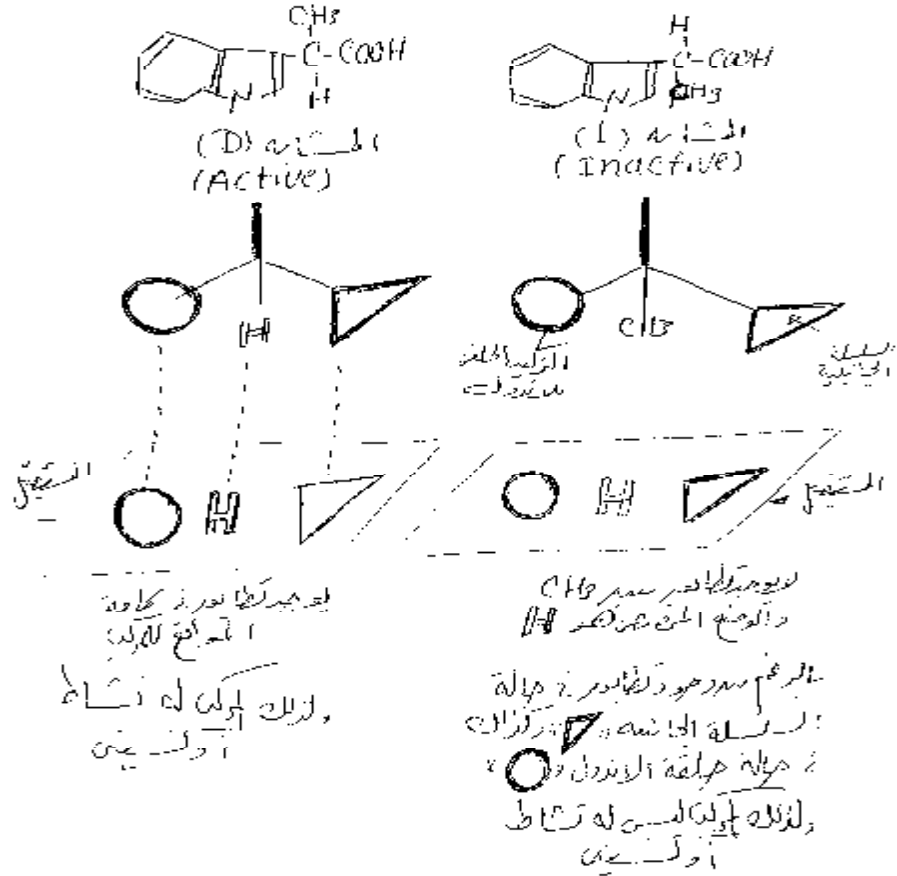 CH3
C-COOH
N
H
المشابه (D)
(Active)
H
C-COOH
N
CH3
المشابه (L)
(Inactive)
H
CH3
التركيب الحلقى
للاندول
السلسلة
الجانبية
المستقبل
H
H
المستقبل
يوجد تطابق فى كافة
المواقع للمركب
ولذلك المركب له نشاط
أوكسينى
لا يوجد تطابق بين CH3
والوضع H
بالرغم من وجود تطابق فى حالة
السلسلة الجانبية وكذلك
فى حالة حلقة الاندول
ولذلك المركب ليس له نشاط
أوكسينى